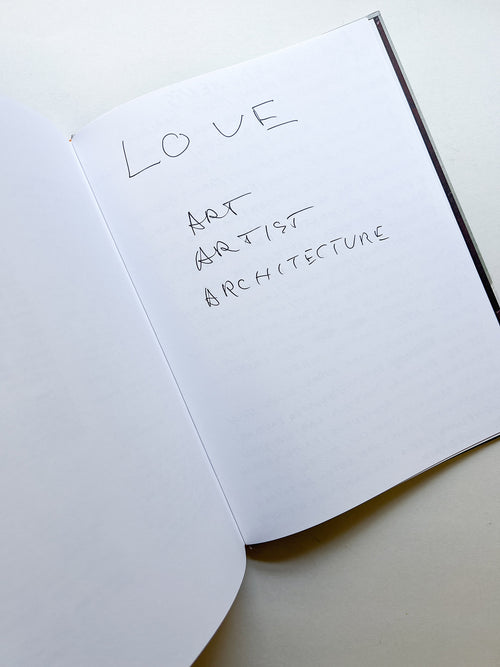 LOVE
ART
ARTIST
ARCHITECTURE